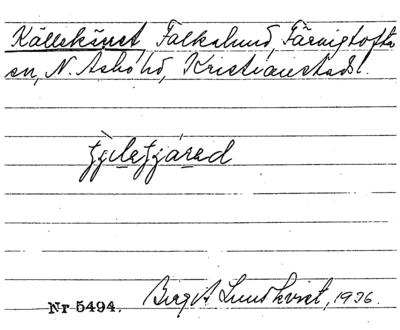 Källekärret Falkalund, Färingtofta
sn, N. Åsbo hd, Kristianstads l.
Nr 5494. Birgit Lundkvist, 1936.